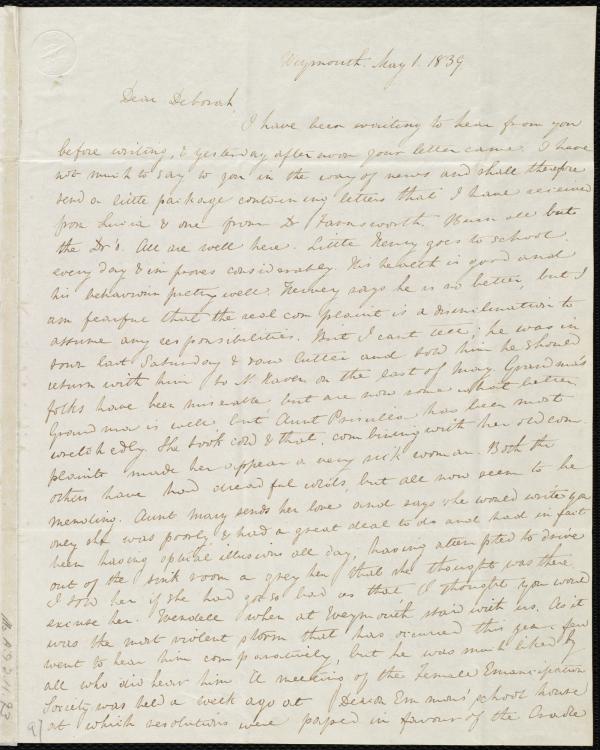 Weymouth. May 1. 1839
Dear Deborah
I have been waiting to hear from you
before writing, & yesterday afternoon your letter came. I have
not much to say to you in the way of news and shall therefore
send a little package containing letters that I have received
from Lucia & one from Dr Farnsworth. Burn all but
the Dr's. All are well here. Little Henry goes to school
every day & improves considerably. His health is good and
his behaviour pretty well. Hervey says he is no better, but I
am fearful that the real complaint is a disinclination to
assume any responsibilities. But I cant tell; he was in
town last Saturday & saw Cutler and told him he should
return with him to N Haven on the last of May. Grandma's
folks have been miserable but are now some what better
Grandma is well, but Aunt Priscilla has been most
wretchedly. She took cold & that, combining with her old com
plaints made her appear a very sick woman. Both the
others have had dreadful colds, but all now seem to be
mending. Aunt Mary sends her love and says she would write you
only she was poorly, & had a great deal to do and had in fact
been having optical illusions all day, having attempted to drive
out of the sink room a grey hen that she thought was there
I told her if she had got so bad as that I thought you would
excuse her. Wendell when at Weymouth staid with us. As it
was the most violent storm that has occurred this year few
went to hear him comparatively, but he was much liked by
all who did hear him. A meeting of the Female Emancipation
Society was held a week ago at Deacon Emmons' school house
at which resolutions were passed in favour of the Cradle